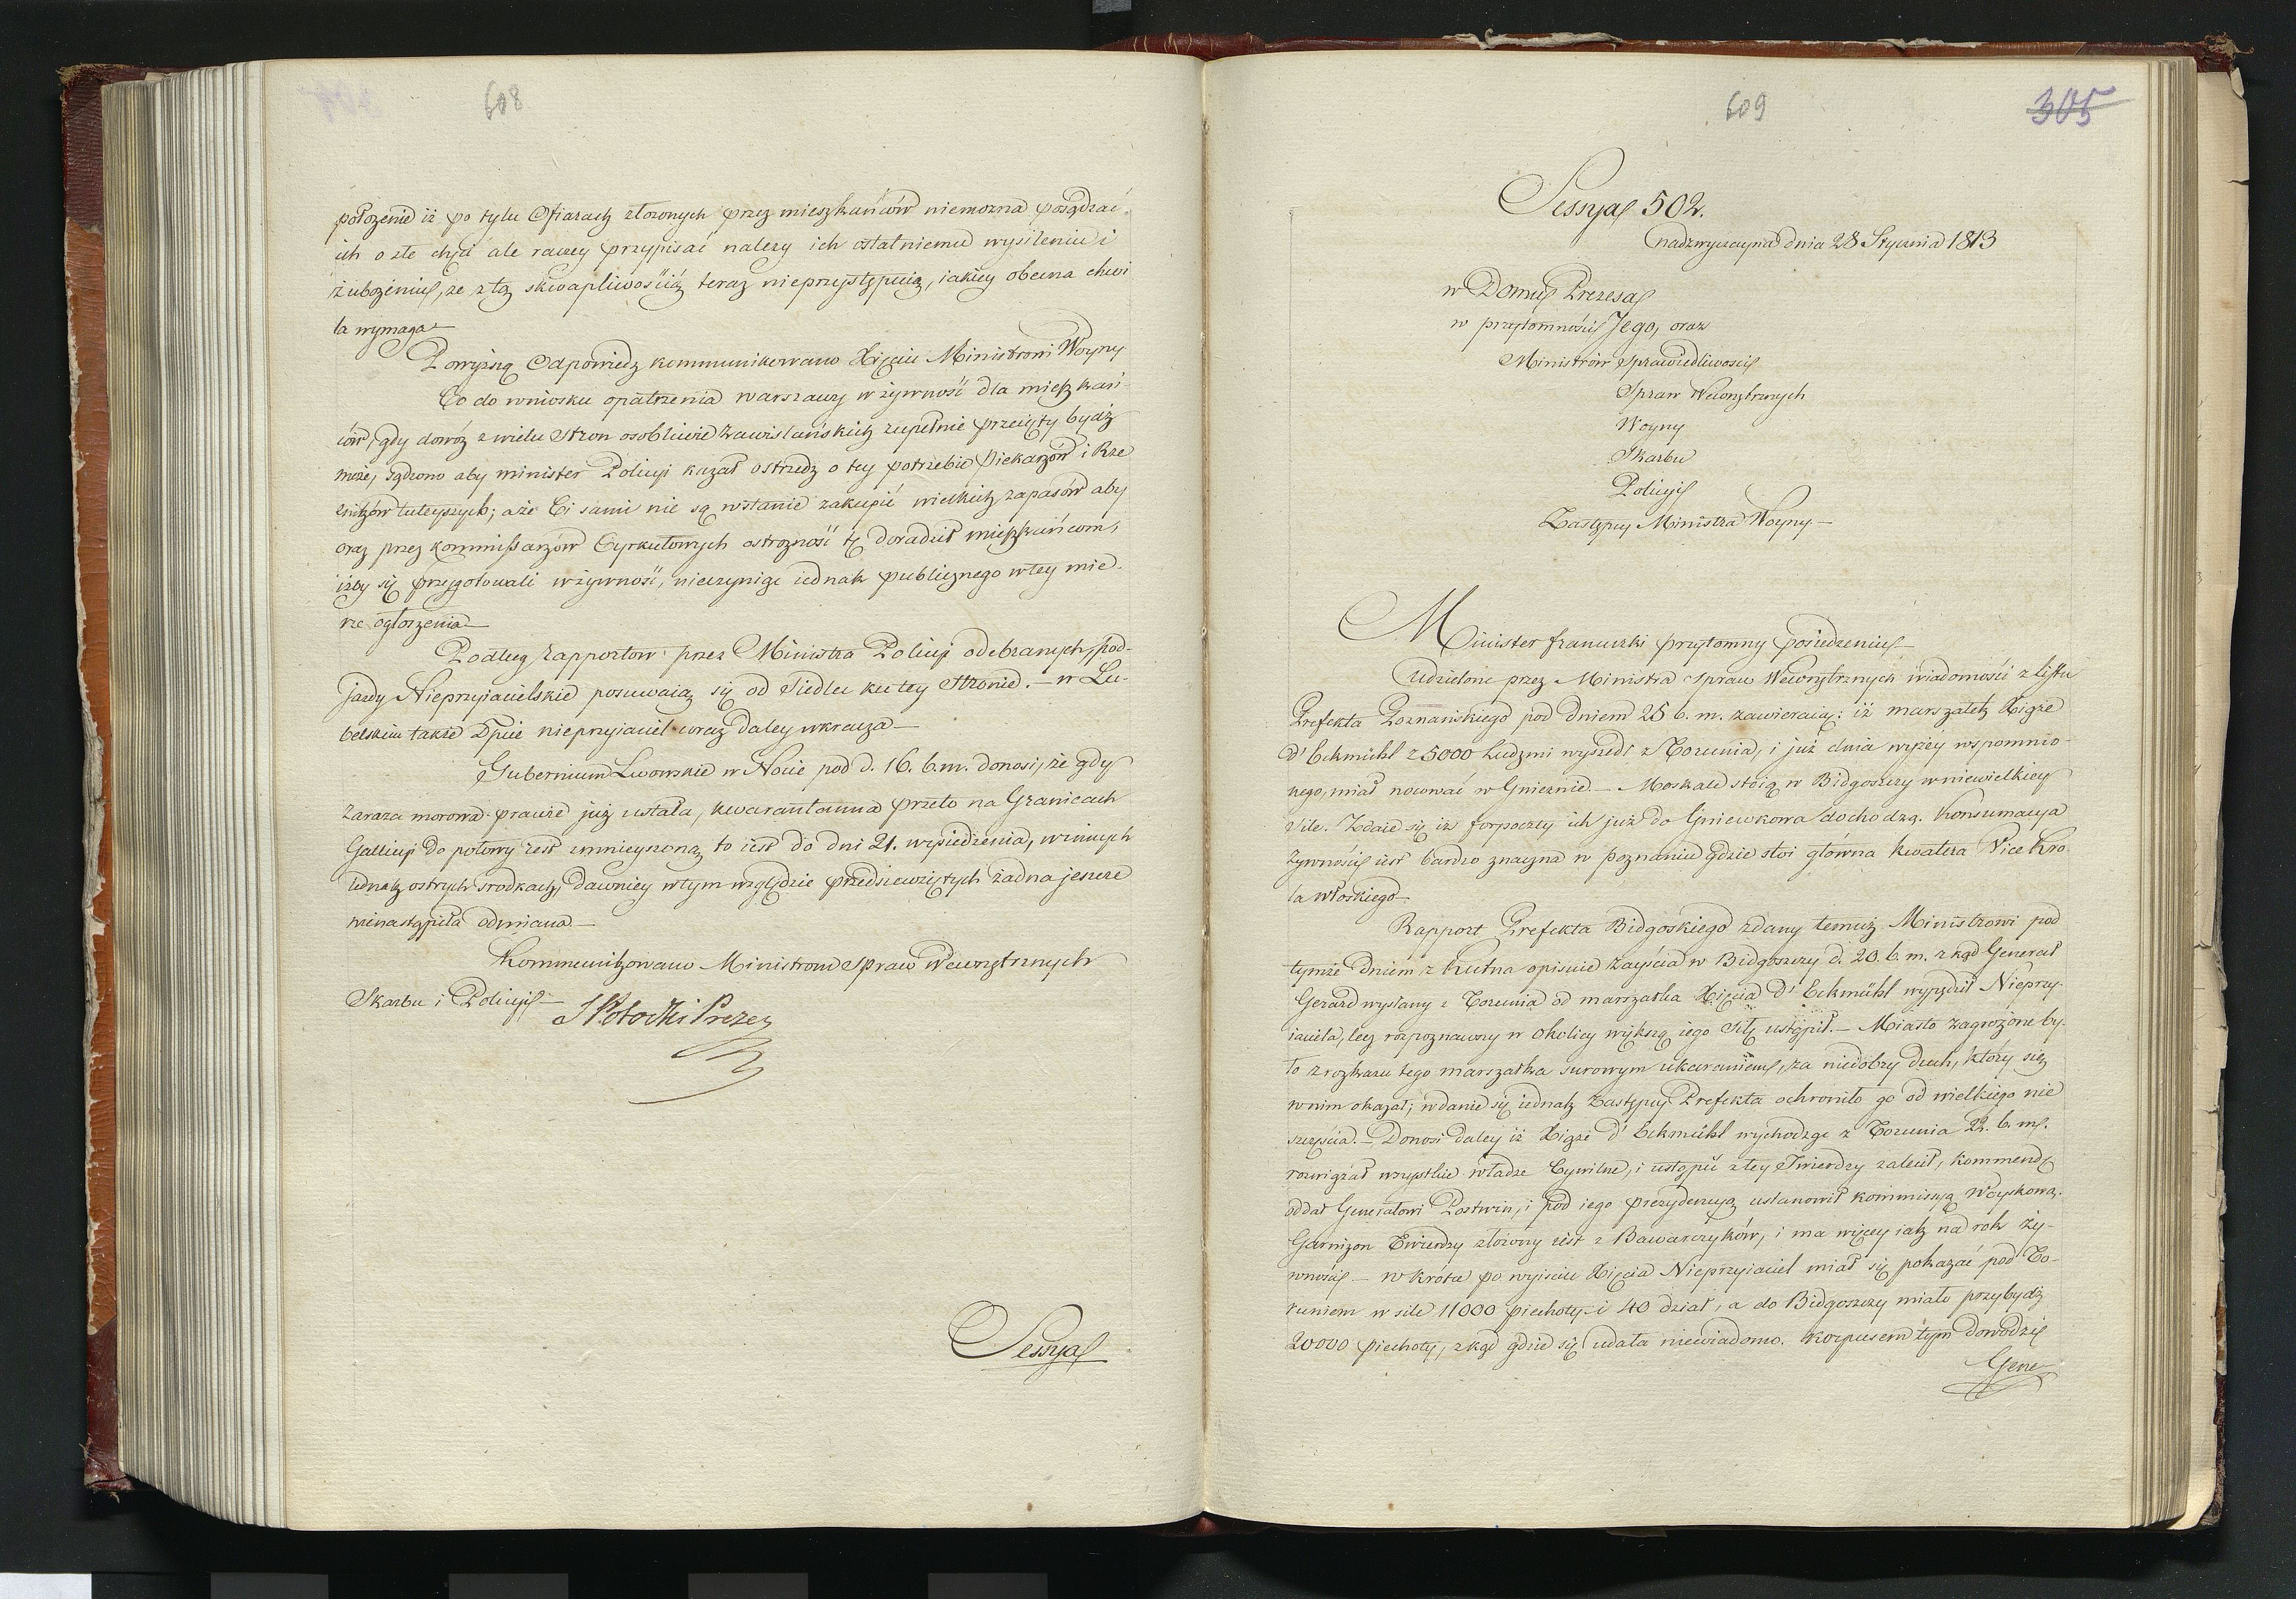 608
położenie iż po tylu Ofiarach złożonych przez mieszkańców niemożna posądzać
ich o złe chęci ale raczey przypisać należy ich ostatniemu wysileniu i
zubożeniu, że z tą skwapliwością teraz nieprzystępuią, iakiey obecna chwi
la wymaga—
Powyższą Odpowiedz kommunikowano Xięciu Ministrowi Woyny
Co do wniosku opatrzenia warszawy w żywność dla mięszkań-
ców, gdy dowóz z wielu stron osobliwie Zawislańskich zupełnie przecięty bydź
może, sądzono aby minister Policyi kazał ostrzedz o tey potrzebie Piekarzów i Rze
źników tuteyszych; a że Ci sami nie są wstanie zakupić wielkich zapasów aby
oraz przez kommissarzów Cyrkułowych ostrożność tę doradził mięszkańcom,
iżby się przygotowali w żywność, nieczyniąc iednak publicznego w tey mie-
rze ogłoszenia—
Podług rapportow przez Ministra Policyi odebranych, pod-
jazdy Nieprzyiacielskie posuwaią się od Siedlec ku tey stronie.— w Lu-
belskim także Dpcie nieprzyiaciel coraz daley wkracza—
Gubernium Lwowskie w Nocie pod d. 16. b.m. donosi, że gdy
Zaraza morowa prawie już ustała, kwarantanna przeto na Granicach
Gallicyi do połowy iest zmnieyszoną, to iest do dni 21. wysiedzenia, w innych
iednak ostrych srodkach, dawniey w tym względzie przedsiewziętych żadna jeszcze
nienastąpiła odmiana.—
Kommunikowano Ministrom Spraw Wewnętrznych
Skarbu i Policyi—
S Potocki Prezes
Sessya
609
305
Sessya 502.
nadzwyczayna dnia 28 Stycznia 1813
w Domu Prezesa
w przytomności Jego, oraz
Ministrów Sprawiedliwości
Spraw Wewnętrznych
Woyny
Skarbu
Policyi
Zastępcy Ministra Woyny—
Minister francuzki przytomny posiedzeniu—
Udzielone przez Ministra Spraw Wewnętrznych wiadomości z listu
Prefekta Poznańskiego pod dniem 25 b. m. zawieraią: iż marszałek Xiąże
d'Eckmühl z 5000 Ludzmi wyszedł z Torunia, i już dnia wyżey wspomnio-
nego, miał nocować w Gnieznie.— Moskale stoią w Bidgoszczy w niewielkiey
sile. Zdaie się iż forpoczty ich już do Gniewkowa dochodzą. Konsumacya
Żywności iest bardzo znaczna w poznaniu gdzie stoi główna kwatera Vice Kró
la włoskiego—
Rapport Prefekta Bidgoskiego zdany temuż Ministrowi pod
tymże Dniem z Kutna opisuie zayścia w Bidgoszczy d. 20. b. m. zkąd Generał
Gerard wysłany z Torunia od marszałka Xięcia D'Eckmühl wypędził Nieprzy-
iaciela, lecz rozpoznawszy w okolicy większą iego siłę ustąpił.— Miasto zagrożone by-
ło z rozkazu tego marszałka surowym ukaraniem, za niedobry duch, który się
w nim okazał; wdanie się iednak Zastępcy Prefekta ochroniło go od wielkiego nie
szczęścia.— Donosi daley iż Xiąże d'Eckmühl wychodząc z Torunia 22. b. m.
rozwiązał wszystkie władze Cywilne, i ustąpić z tey Twierdzy zalecił, kommendę
oddał Generałowi Postwin, i pod iego prezydencyą ustanowił kommisyą woyskową.
Garnizon Twierdzy złożony iest z Bawarczyków, i ma więcey iak na rok ży-
wności— w krotce po wyisciu Xięcia Nieprzyiaciel miał się pokazać pod To-
runiem w sile 11000 piechoty i 40 dział, a do Bidgoszczy miało przybydź
20000 piechoty, zkąd gdzie się udała niewiadomo. Korpusem tym dowodzi
Gene